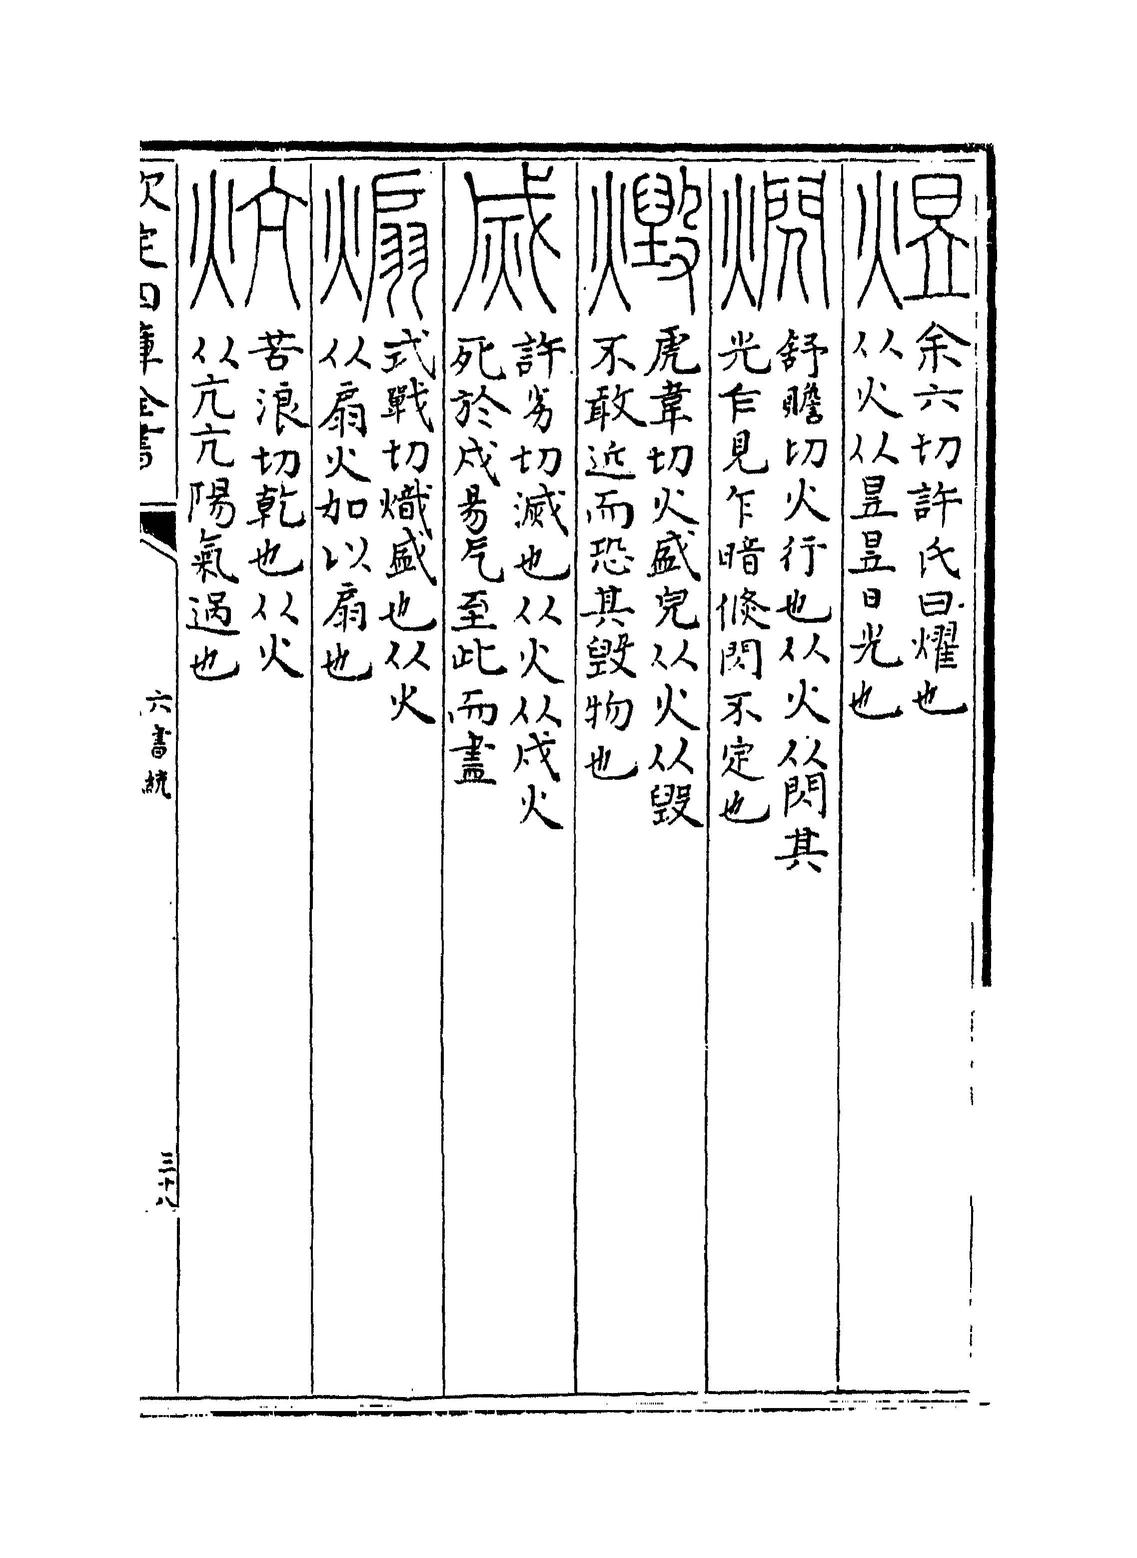 煜
余六切許氏曰燿也
从火从昱昱日光也
㷔
舒贍切火行也从火从閃其
光乍見乍暗倐閃不定也
燬
虎葦切火盛皃从火从毀
不敢近而恐其毀物也
烕
許劣切滅也从火从戌火
死於戌昜气至此而盡
煽
式戰切熾盛也从火
从扇火加以扇也
炕
苦浪切乾也从火
从亢亢陽氣過也
欽定四庫全書
六書統
三十八